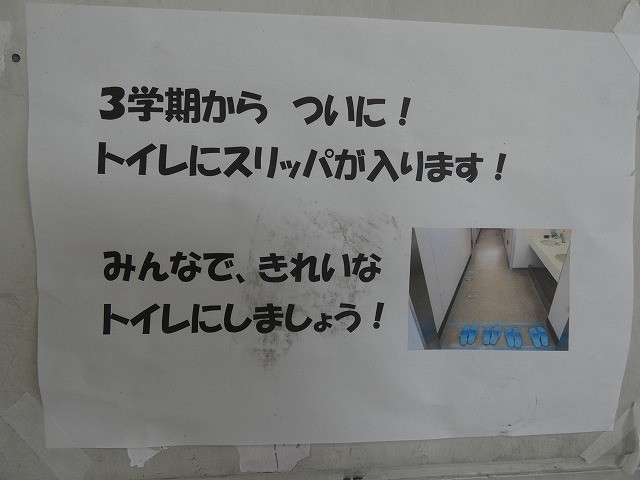 3学期から ついに!
トイレにスリッパが入ります!
みんなで、きれいな
トイレにしましょう!